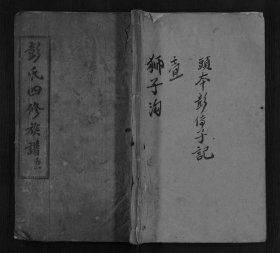 頭本彭倫子記
壹
獅子沟
彭氏四修族譜